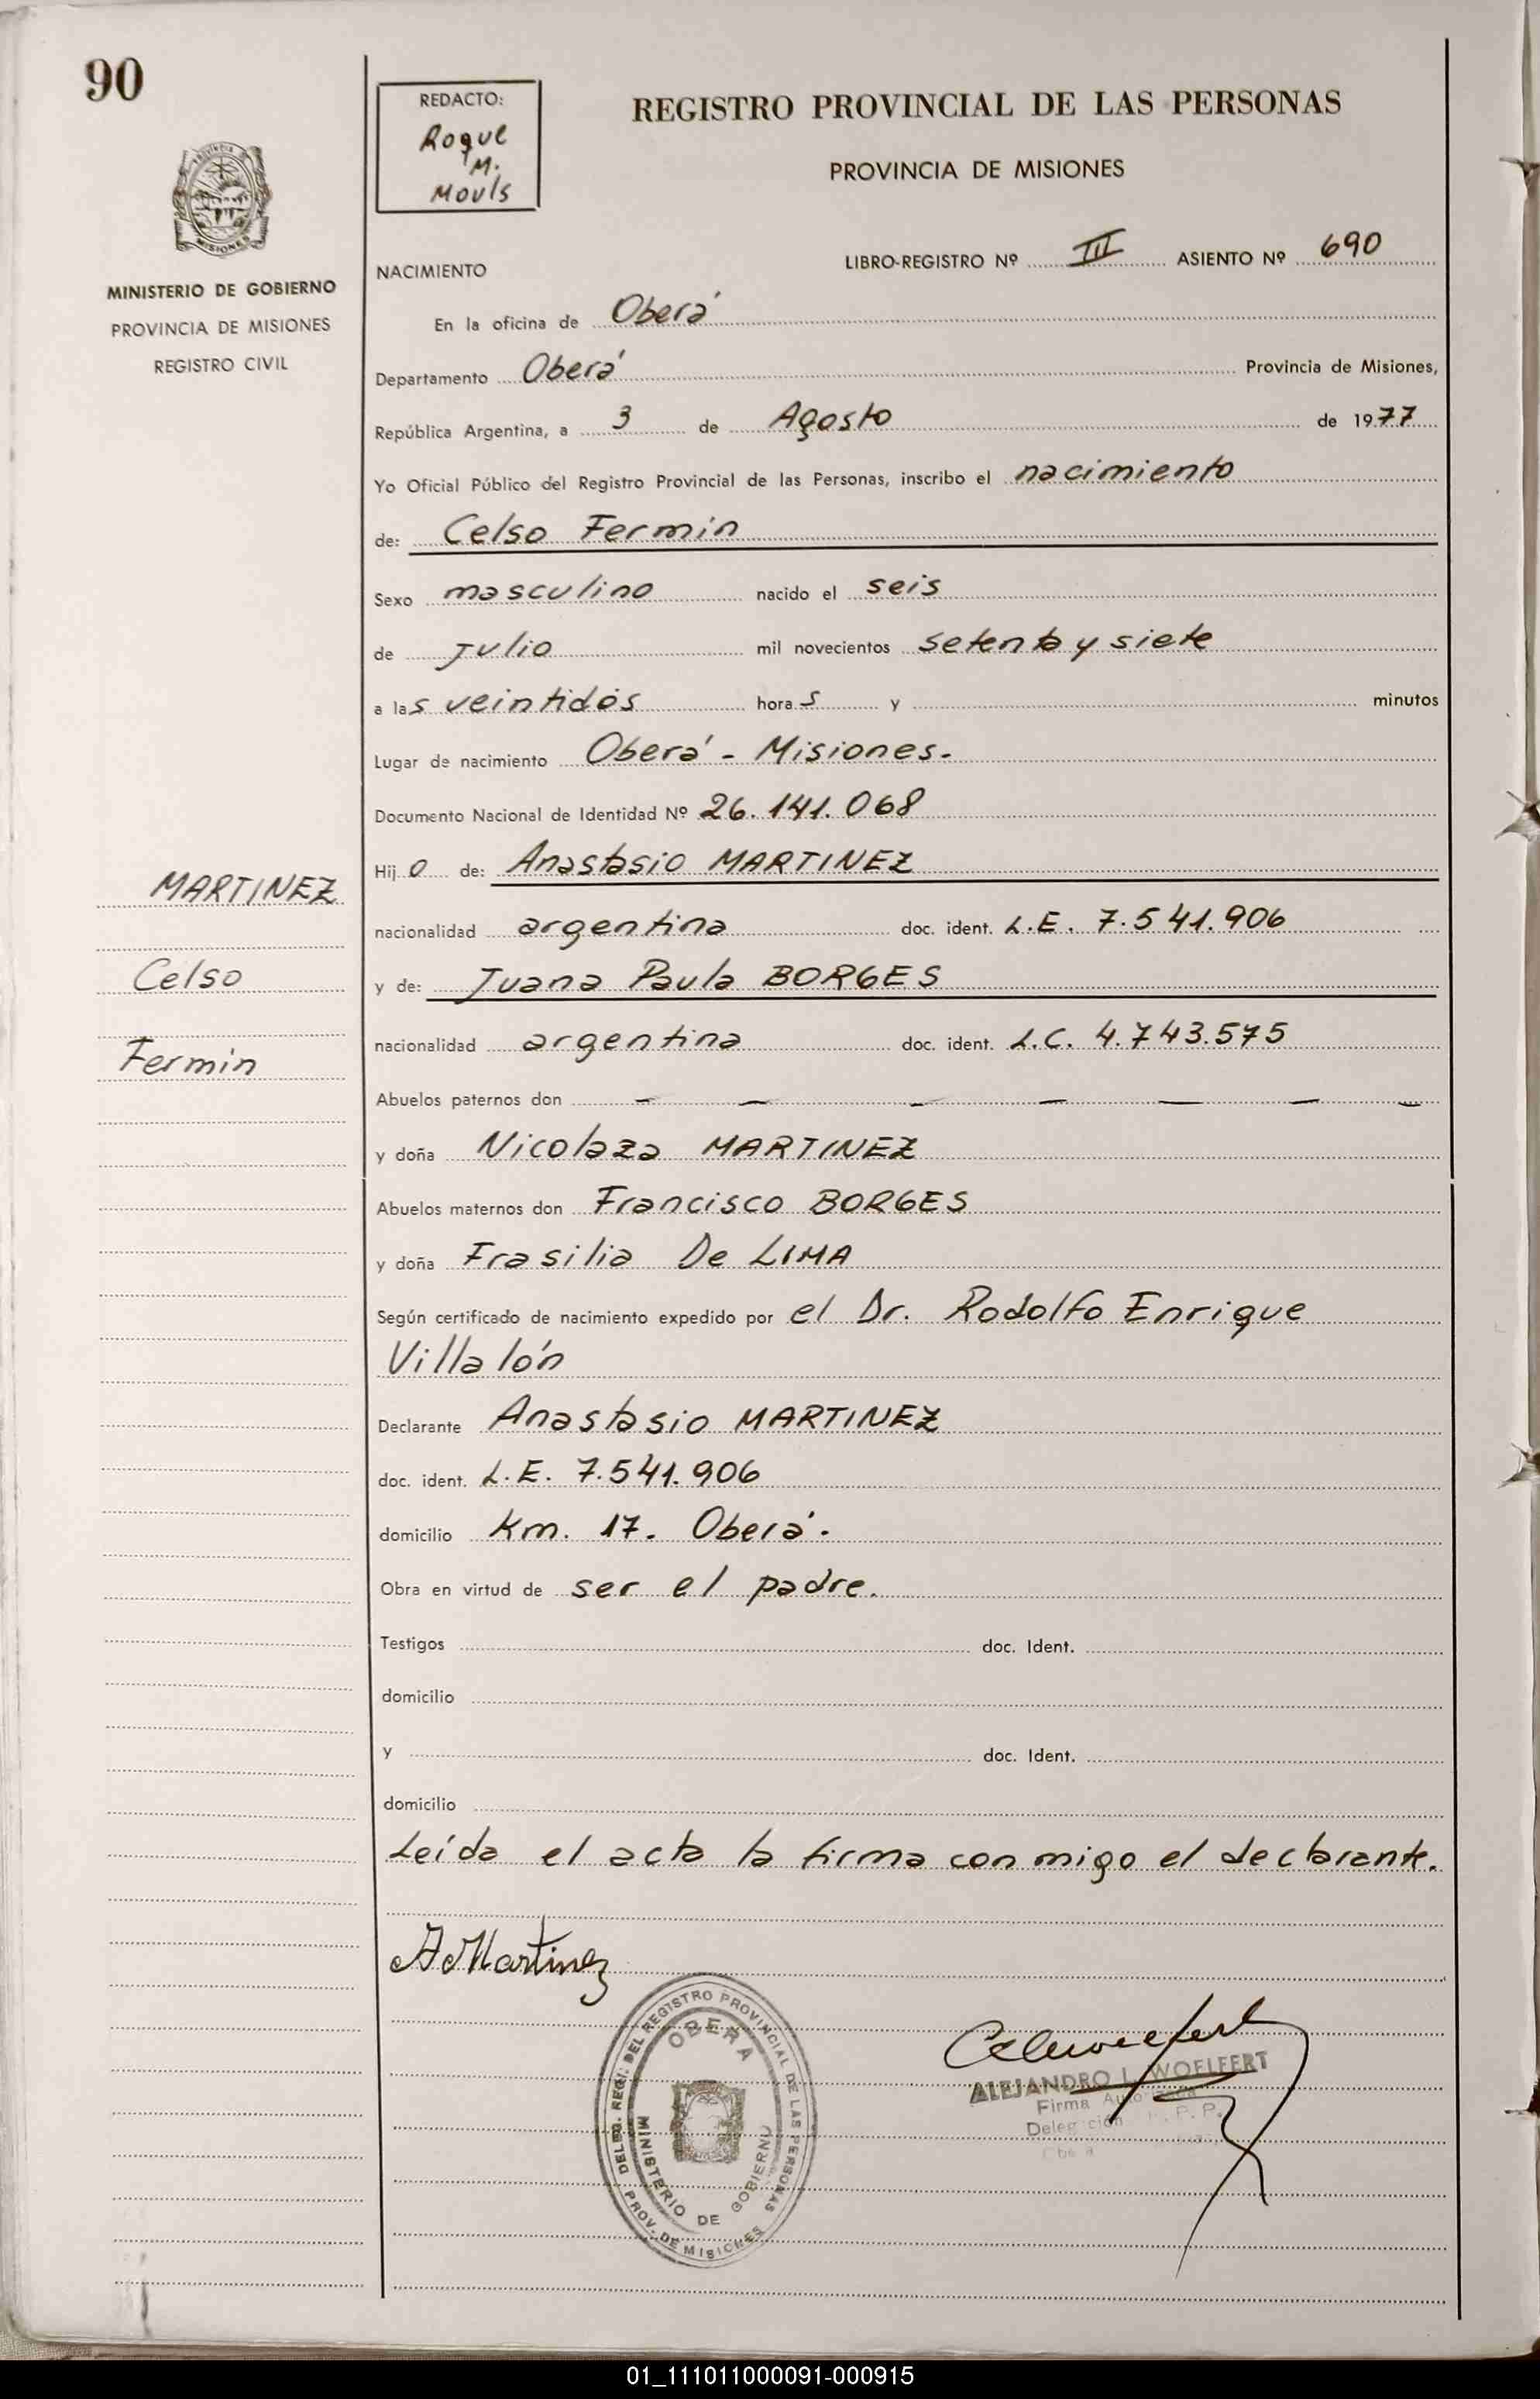 90
REDACTO:
Roque
M.
Mouls
REGISTRO PROVINCIAL DE LAS PERSONAS
PROVINCIA DE MISIONES
MISIONES
MINISTERIO DE GOBIERNO
PROVINCIA DE MISIONES
REGISTRO CIVIL
NACIMIENTO
LIBRO-REGISTRO Nº III ASIENTO Nº 690
En la oficina de Oberá
Departamento Oberá Provincia de Misiones,
República Argentina, a 3 de Agosto de 1977
Yo Oficial Público del Registro Provincial de las Personas, inscribo el nacimiento
de: Celso Fermin
Sexo masculino nacido el seis
de Julio mil novecientos setenta y siete
a las veintidós horas y minutos
Lugar de nacimiento Oberá - Misiones.
Documento Nacional de Identidad Nº 26.141.068
Hijo de: Anastasio MARTINEZ
MARTINEZ
nacionalidad argentina doc. ident. L.E. 7.541.906
Celso
y de: Juana Paula BORGES
nacionalidad argentina doc. ident. L.C. 4.743.575
Fermin
Abuelos paternos don - - - - - - -
y doña Nicolaza MARTINEZ
Abuelos maternos don Francisco BORGES
y doña Frasilia De LIMA
Según certificado de nacimiento expedido por el Dr. Rodolfo Enrique
Villalón
Declarante Anastasio MARTINEZ
doc. ident. L.E. 7.541.906
domicilio Km. 17. Oberá.
Obra en virtud de ser el padre.
Testigos doc. Ident.
domicilio
y doc. Ident.
domicilio
Leída el acta la firma con migo el declarante.
A Martinez
DELEG. REGI. DEL REGISTRO PROVINCIAL DE LAS PERSONAS
OBERA
MINISTERIO DE GOBIERNO
PROV. DE MISIONES
ALEJANDRO L. WOELFERT
Firma
Delegación P. P.
01_111011000091-000915